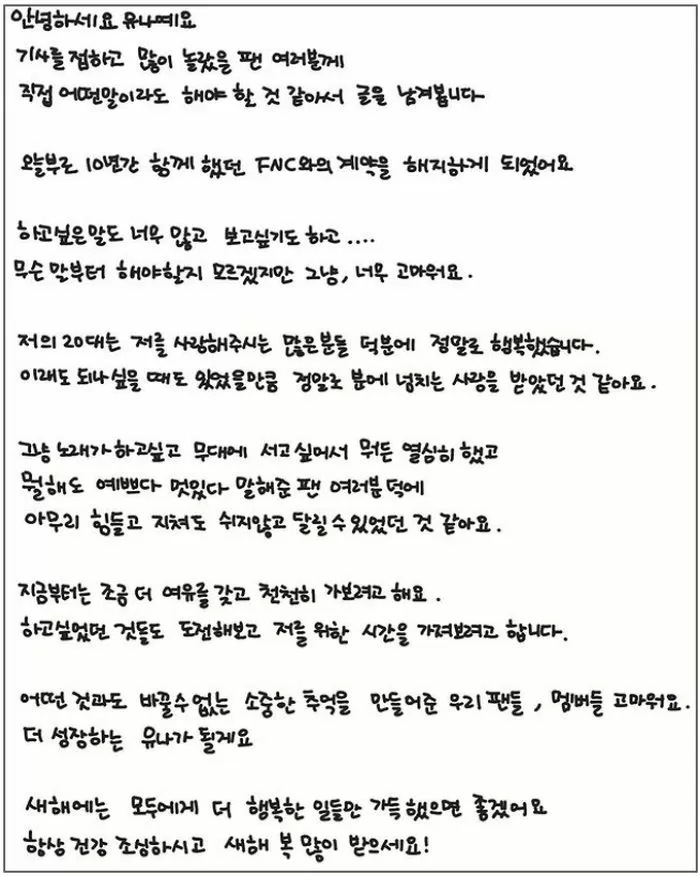 안녕하세요 유나예요
기사를 접하고 많이 놀랐을 팬 여러분께
직접 어떤말이라도 해야 할 것 같아서 글을 남겨봅니다
오늘부로 10년간 함께 했던 FNC와의 계약을 해지하게 되었어요
하고싶은말도 너무 많고 보고싶기도 하고....
무슨 말부터 해야할지 모르겠지만 그냥, 너무 고마워요.
저의 20대는 저를 사랑해주시는 많은분들 덕분에 정말로 행복했습니다.
이래도 되나싶을 때도 있었을만큼 정말로 분에 넘치는 사랑을 받았던 것 같아요.
그냥 노래가 하고싶고 무대에 서고 싶어서 뭐든 열심히 했고
뭘해도 예쁘다 멋있다 말해준 팬 여러분덕에
아무리 힘들고 지쳐도 쉬지않고 달릴수있었던 것 같아요.
지금부터는 조금 더 여유를 갖고 천천히 가보려고 해요.
하고싶었던 것들도 도전해보고 저를 위한 시간을 가져보려고 합니다.
어떤 것과도 바꿀수없는 소중한 추억을 만들어준 우리 팬들, 멤버들 고마워요.
더 성장하는 유나가 될게요
새해에는 모두에게 더 행복한 일들만 가득했으면 좋겠어요
항상 건강 조심하시고 새해 복 많이 받으세요!